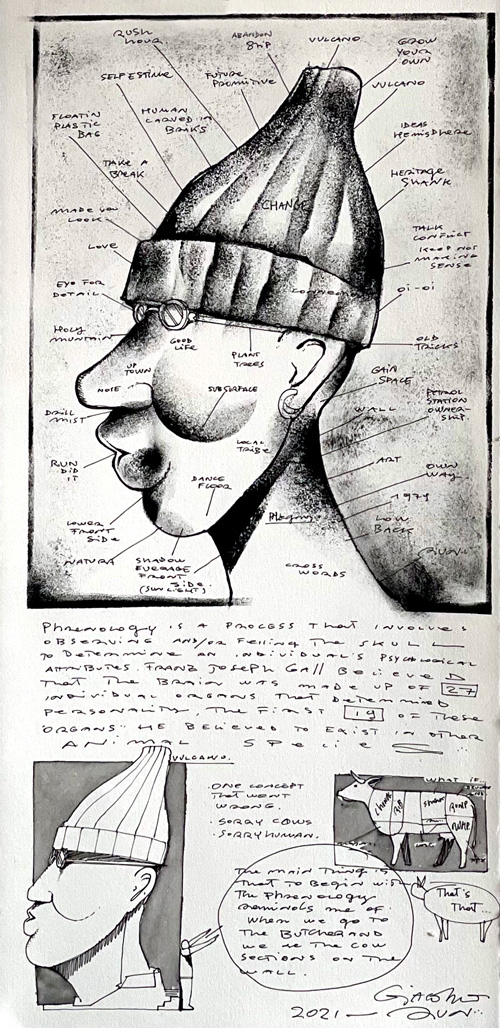 RUSH
HOUR
ABANDON
SHIP
VULCANO
GROW
YOUR
OWN
SELF ESTIME
FUTURE
PRIMITIVE
VULCANO
FLOATIN
PLASTIC
BAG
HUMAN
CARVED IN
BRIKS
IDEAS
HEMISPHERE
TAKE A
BREAK
HERITAGE
SHANK
CHANGE
MADE YOU
LOOK
TALK
CONFLICT
KEEP NOT
MAKING
SENSE
LOVE
EYE FOR
DETAIL
OI-OI
HOLY
MOUNTAIN
GOOD
LIFE
PLANT
TREES
OLD
TRICKS
UP
TOWN
NOTE
SUBSURFACE
GAIN
SPACE
DRILL
MIST
WALL
PETROL
STATION
OWNER-
SHIP
LOCAL
TRIBE
RUN
DID
IT
ART
OWN
WAY
DANCE
FLOOR
1979
LOWER
FRONT
SIDE
LOW
BACK
NATURA
SHADOW
EVERAGE
FRONT
SIDE.
(SUN LIGHT)
CROSS
WORDS
PHRENOLOGY IS A PROCESS THAT INVOLVES
OBSERVING AND/OR FELLING THE SKULL
TO DETERMINE AN INDIVIDUAL'S PSYCOLOGICAL
ATTRIBUTES. FRANZ JOSEPH GALL BELIEVED
THAT THE BRAIN WAS MADE UP OF 27
INDIVIDUAL ORGANS THAT DETERMINED
PERSONALITY, THE FIRST 19 OF THESE
'ORGANS' HE BELIEVED TO EXIST IN OTHER
ANIMAL SPECIES
VULCANO.
• ONE CONCEPT
THAT WENT
WRONG.
• SORRY COWS
• SORRY HUMAN.
WHAT IF
CHUNK
RIB
RUMP
THE MAIN THING IS
THAT TO BEGIN WITH
THE PHRENOLOGY
REMINDS ME OF
WHEN WE GO TO
THE BUTCHER AND
WE SE THE COW
SECTIONS ON THE
WALL.
THAT'S
THAT..
2021 —